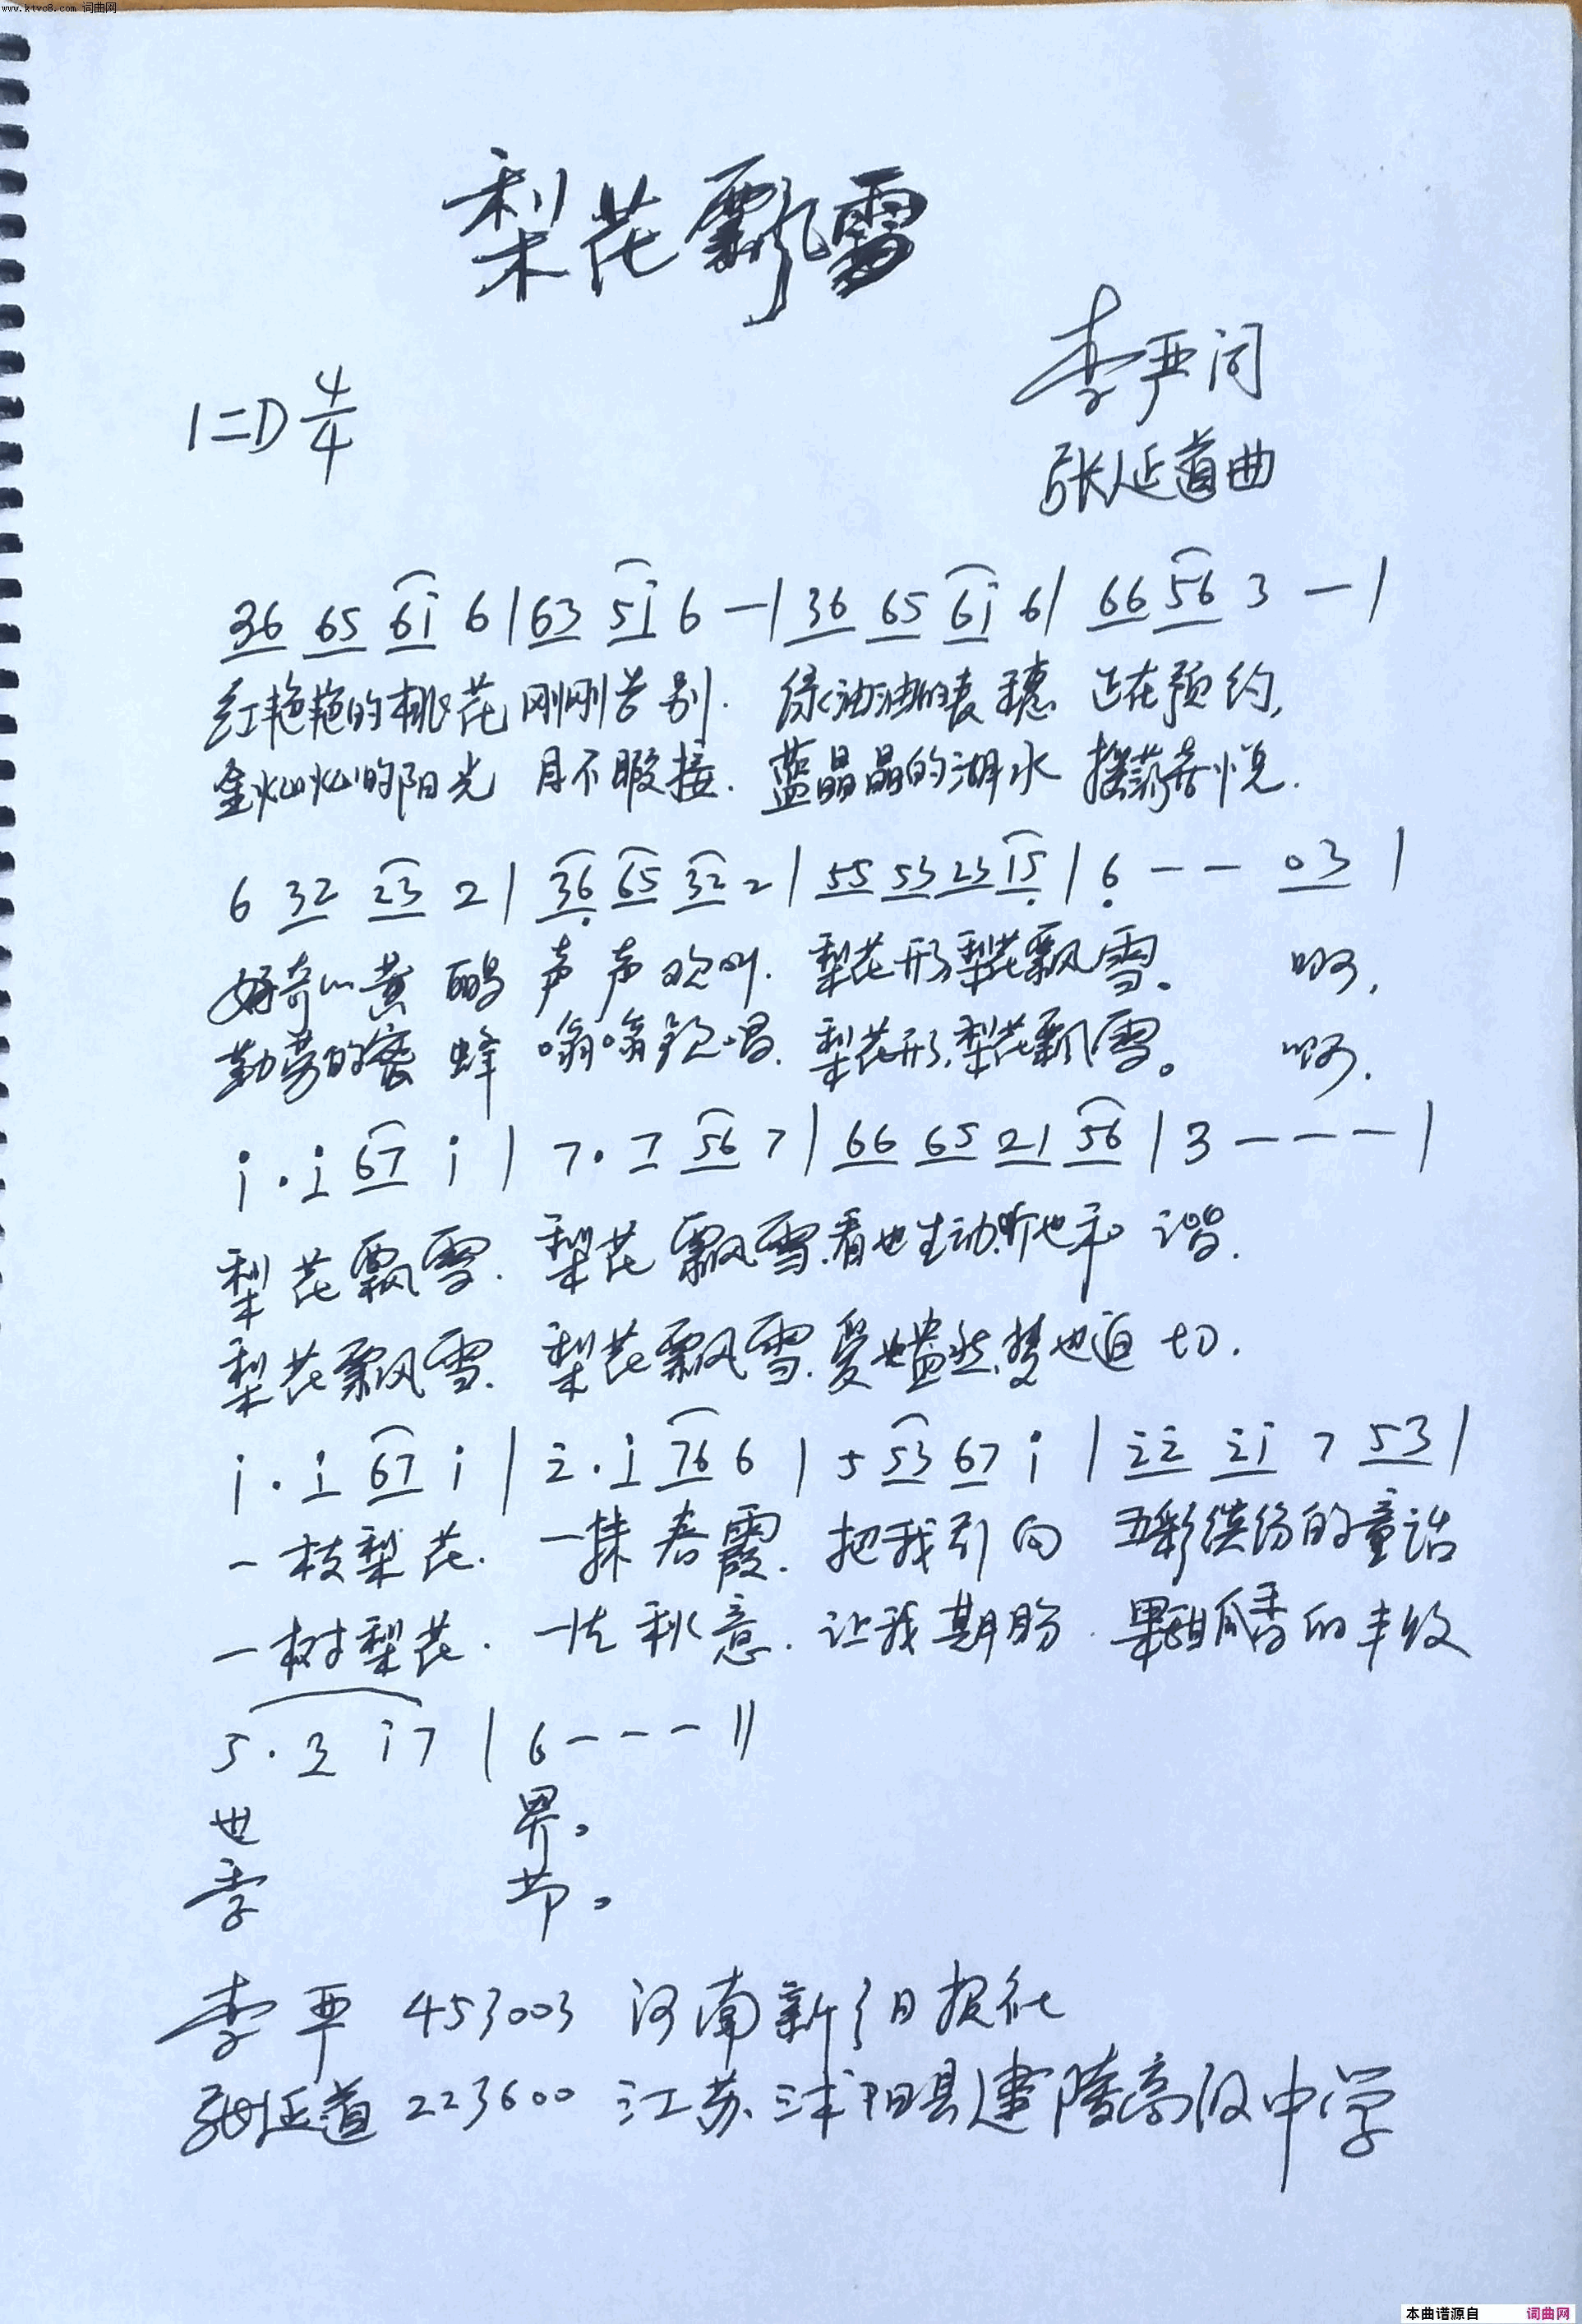 www.ktvc8.com 词曲网
梨花飘雪
李严词
1=D 4/4
张延道曲
36 65 6i 6 | 63 5i 6 — | 36 65 6i 6 | 66 56 3 — |
红艳艳的桃花刚刚告别. 绿油油的麦穗 正在预约,
金灿灿的阳光 目不暇接. 蓝晶晶的湖水 摇荡喜悦.
6 32 23 2 | 36 65 32 2 | 55 53 23 15 | 6 — — 03 |
好奇的黄鹂声声欢叫. 梨花形梨花飘雪。 啊,
勤劳的蜜蜂 嗡嗡歌唱. 梨花形,梨花飘雪。 啊.
i · i 67 i | 7 · 7 56 7 | 66 65 21 56 | 3 — — — |
梨花飘雪. 梨花飘雪.看也生动.听也和谐.
梨花飘雪. 梨花飘雪.爱也盎然.梦也迫切.
i · i 67 i | 2 · i 76 6 | 5 53 67 i | 22 2i 7 53 |
一枝梨花. 一抹春霞. 把我引向 五彩缤纷的童话
一树梨花. 一片秋意. 让我期盼. 果甜瓜香的丰收
5 · 3 i7 | 6 — — — ‖
世 界。
季 节。
李严 453003 河南新乡日报社
张延道 223600 江苏沭阳县建陵高级中学
本曲谱源自 词曲网